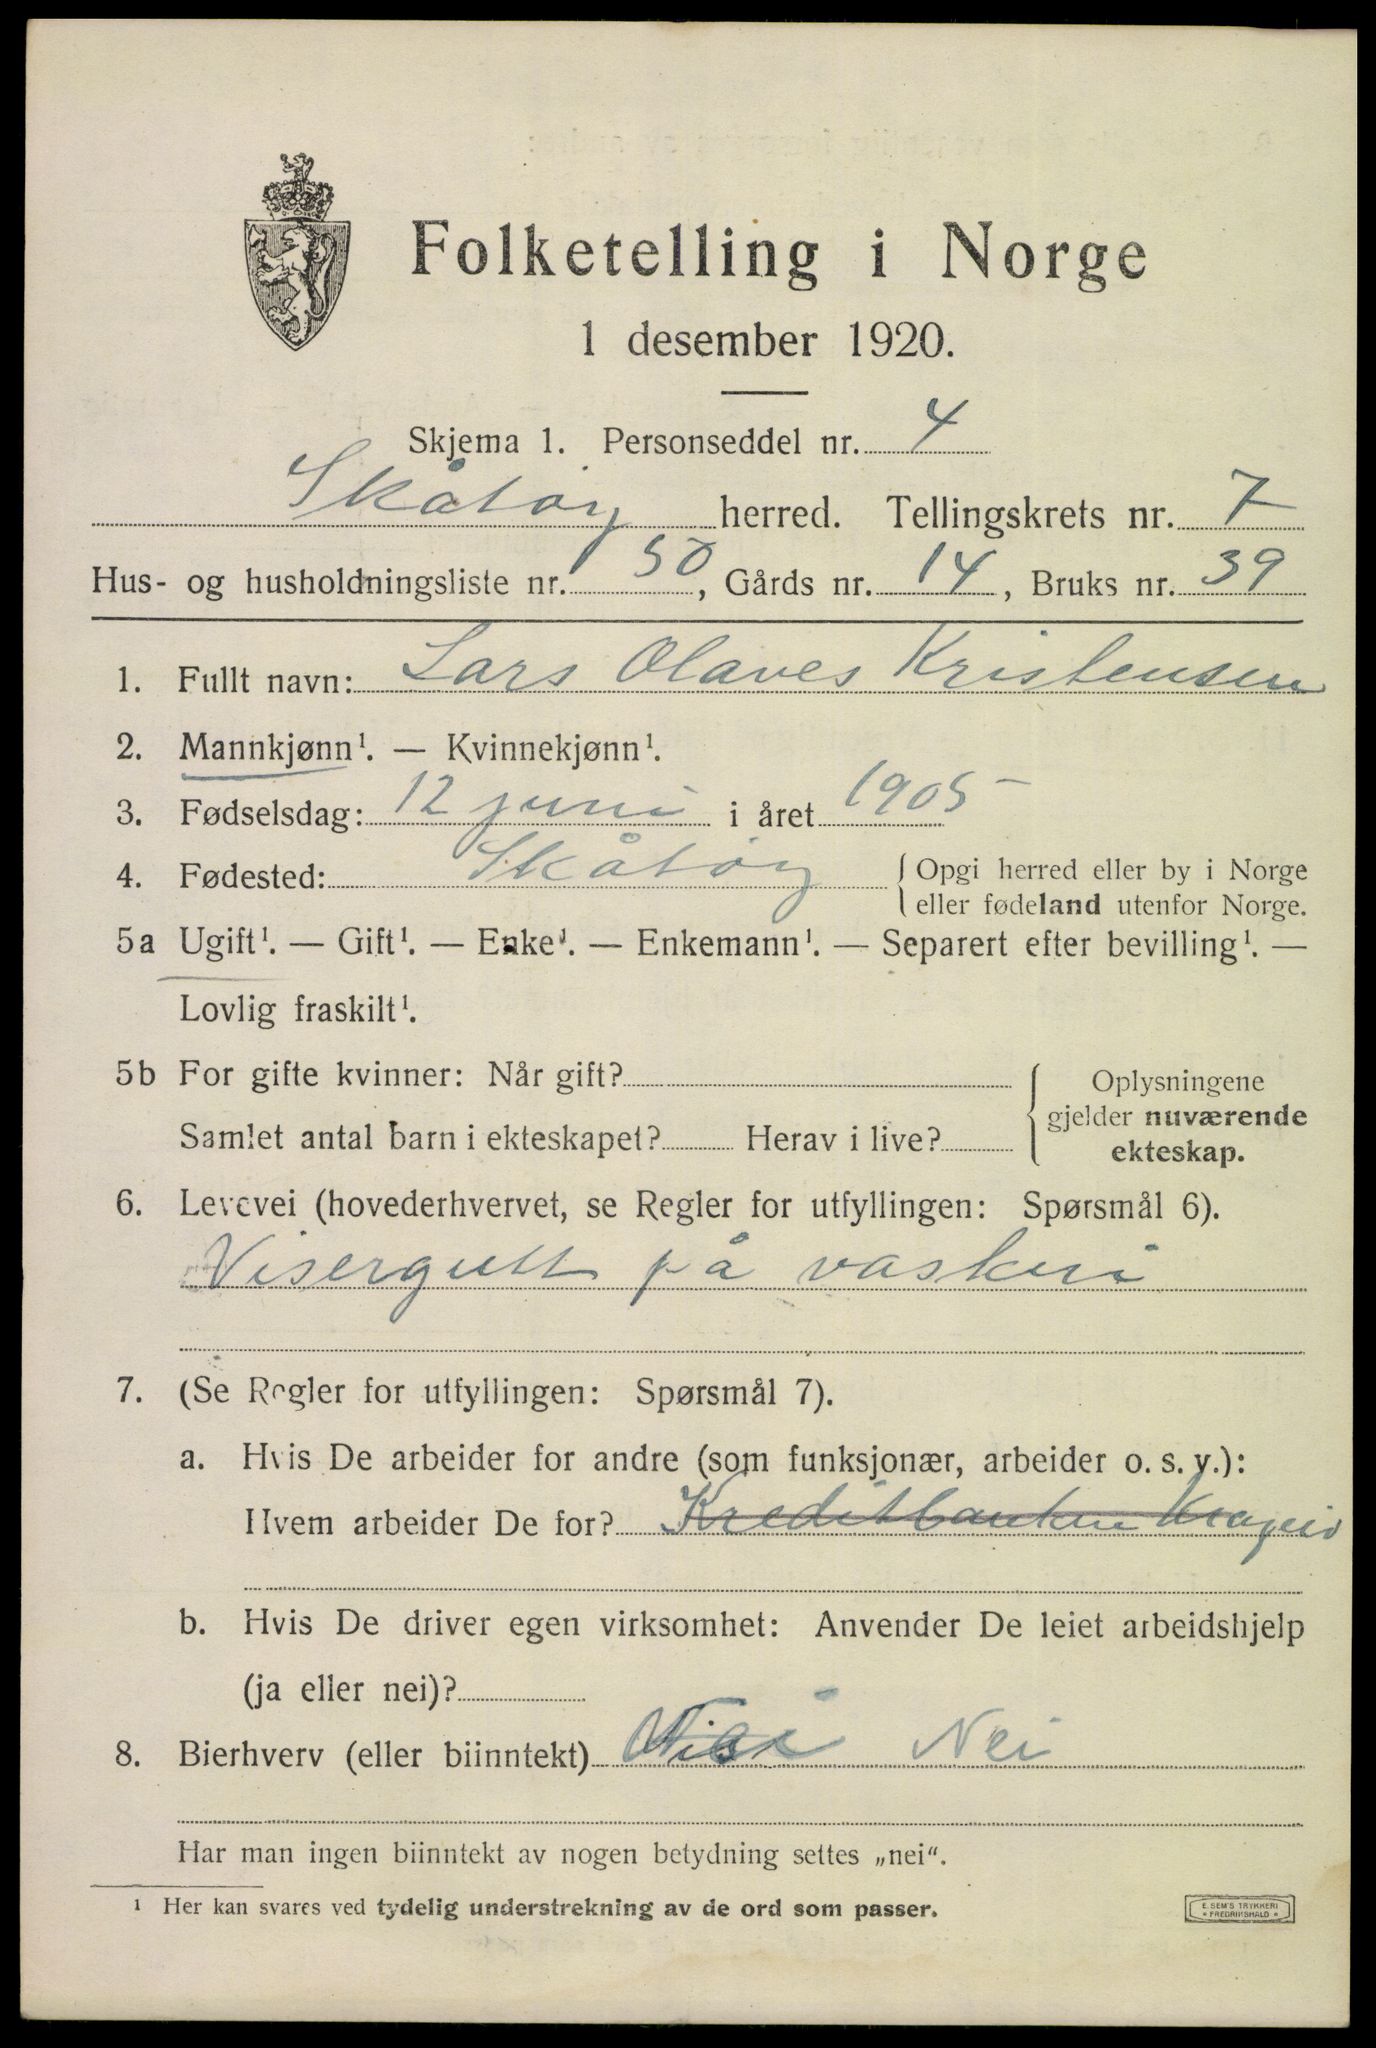 Folketelling i Norge
1 desember 1920.
Skjema 1. Personseddel nr. 4
Skåtøy herred. Tellingskrets nr. 7
Hus- og husholdningsliste nr. 50, Gårds nr. 14, Bruks nr. 39
1. Fullt navn: Lars Olaves Kristensen
2. Mannkjønn¹. — Kvinnekjønn¹.
3. Fødselsdag: 12 juni i året 1905
4. Fødested: Skåtøy { Opgi herred eller by i Norge
eller fødeland utenfor Norge.
5a Ugift¹. — Gift¹. — Enke¹. — Enkemann¹. — Separert efter bevilling¹. —
Lovlig fraskilt¹.
5b For gifte kvinner: Når gift?
Samlet antal barn i ekteskapet? Herav i live?
Oplysningene
gjelder nuværende
ekteskap.
6. Levevei (hovederhvervet, se Regler for utfyllingen: Spørsmål 6).
Visergutt på vaskeri
7. (Se Regler for utfyllingen: Spørsmål 7).
a. Hvis De arbeider for andre (som funksjonær, arbeider o. s. v.):
Hvem arbeider De for? Kreditbanken Kragerø
b. Hvis De driver egen virksomhet: Anvender De leiet arbeidshjelp
(ja eller nei)?
8. Bierhverv (eller biinntekt) Nei
Har man ingen biinntekt av nogen betydning settes „nei".
¹ Her kan svares ved tydelig understrekning av de ord som passer.
E. SEM'S TRYKKERI
* FREDRIKSHALD *